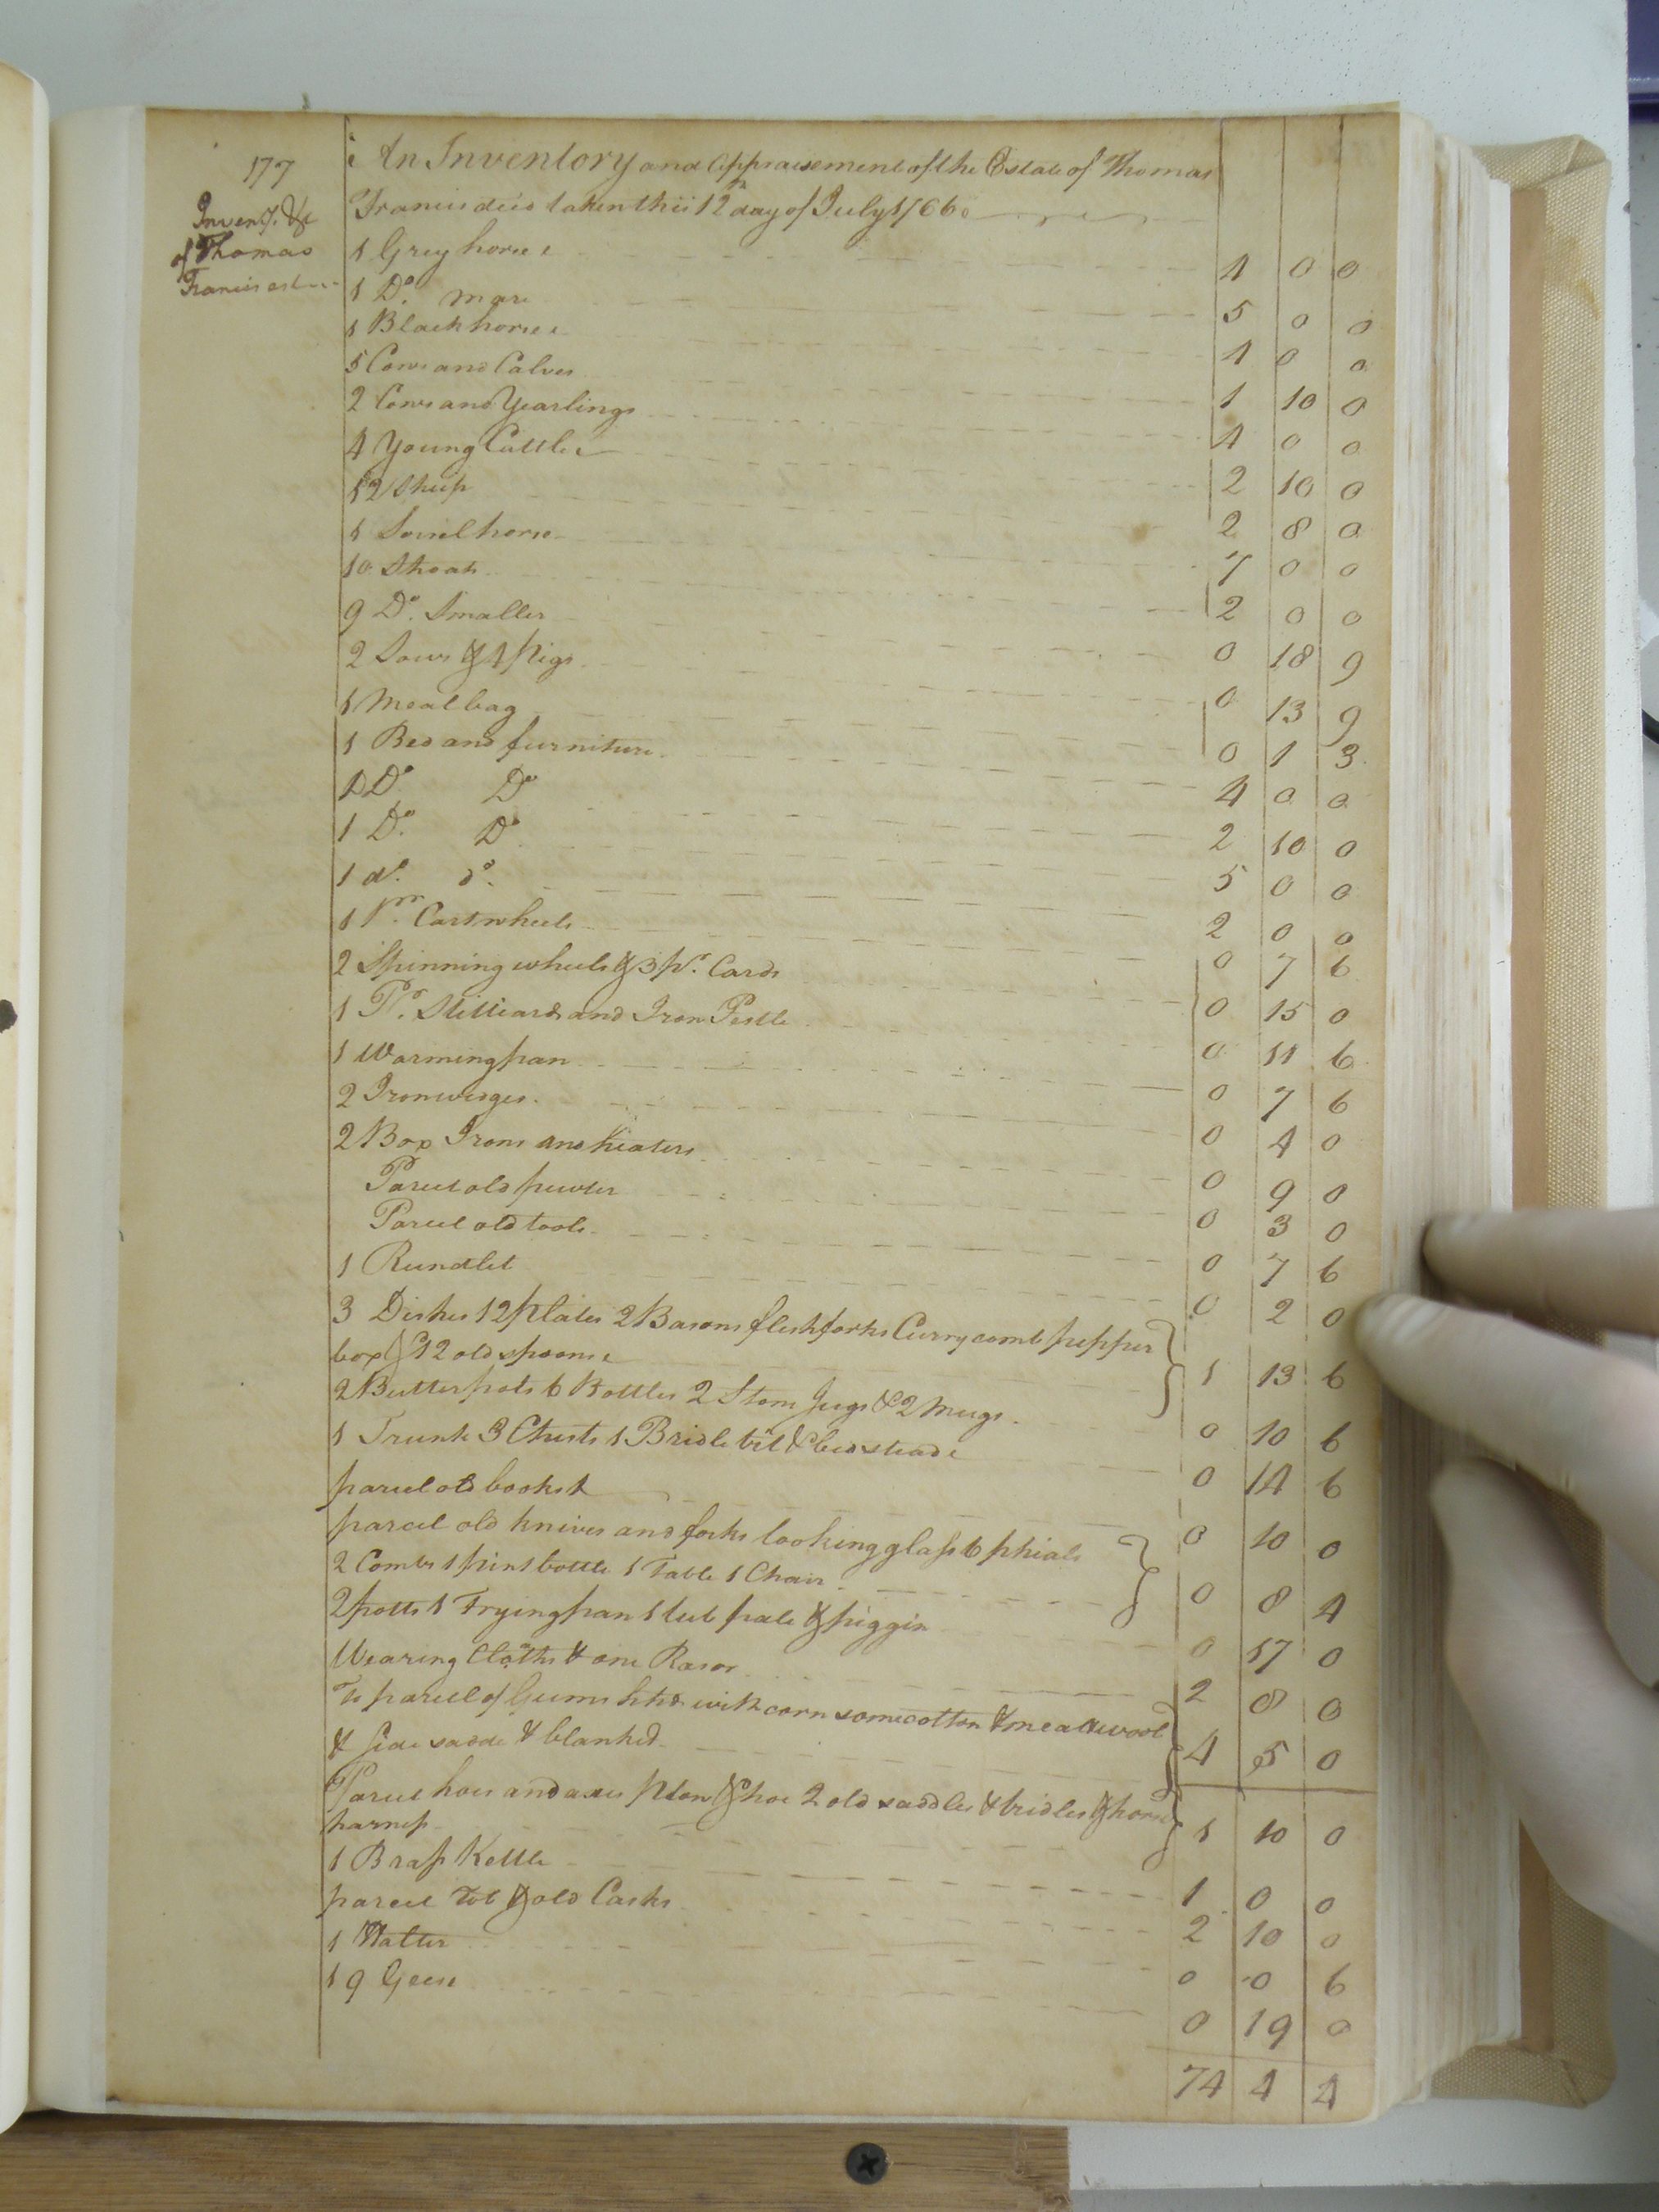 177
Invent.y &c
of Thomas
Francis est
An Inventory and Appraisement of the Estate of Thomas
Francis decd taken this 12th day of July 1766
1 Grey horse 4 0 0
1 Do. mare 5 0 0
1 Black horse 4 0 0
5 Cows and Calves 1 10 0
2 Cows and Yearlings 4 0 0
4 Young Cattle 2 10 0
12 Sheep 2 8 0
1 Sorrel horse 7 0 0
10 Shoats 2 0 0
9 Do. Smaller 0 18 9
2 Sows & 4 pigs 0 13 9
1 Meal bag 0 1 3
1 Bed and furniture 4 0 0
1 Do. Do 2 10 0
1 Do. Do. 5 0 0
1 do. do. 2 0 0
1 Pr. Cartwheels 0 7 6
2 Spinning wheels & 3 pr. Cards 0 15 0
1 Pr. Stilliards and Iron Pestle 0 11 6
1 Warming pan 0 7 6
2 Iron wedges 0 4 0
2 Box Irons and heaters 0 9 0
Parcel old pewter 0 3 0
Parcel old tools 0 7 6
1 Rundlet 0 2 0
3 Dishes 12 plates 2 Basons flesh forks Curry comb pepper
box & 12 old spoons 1 13 6
2 Butter pots 6 Bottles 2 Stone Jugs & 2 Mugs 0 10 6
1 Trunk 3 Chests 1 Bridle bit & bedstead 0 14 6
parcel old books 0 10 0
parcel old knives and forks looking glass 6 phials
2 Combs 1 pint bottle 1 Table 1 Chair 0 8 4
2 potts 1 Frying pan 1 tub pale & piggin 0 17 0
Wearing Cloaths & one Rasor 2 8 0
To parcel of Gums with corn some cotton & meal & wool
& side sadde & blanket 4 5 0
Parcel hoes and axes plow & hoe 2 old saddles & bridles & horse
harness 1 10 0
1 Brass Kettle 1 0 0
parcel Tob & old Casks 2 10 0
1 Halter 0 0 6
19 Geese 0 19 0
74 4 4